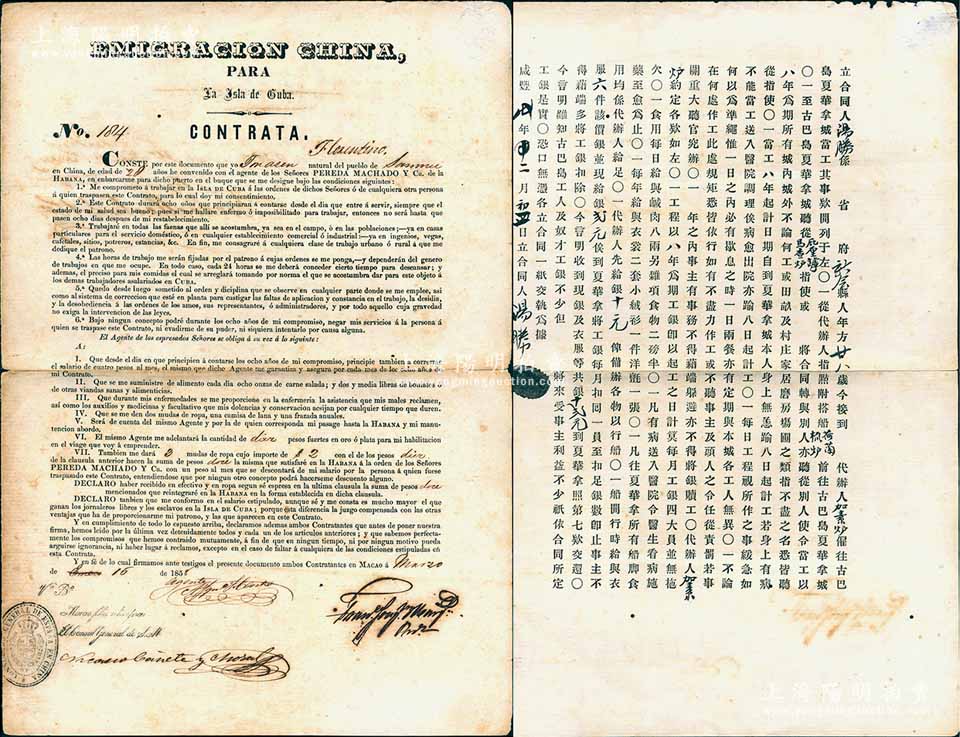 EMIGRACION CHINA,
PARA
La Isla de Cuba.
No. 184
CONTRATA.
Florentino,
CONSTE por este documento que yo natural del pueblo de
en China, de edad de 28 años he convenido con el agente de los Señores PEREDA MACHADO Y Ca. de la
HABANA, en embarcarme para dicho puerto en el buque que se me designe bajo las condiciones siguientes:
1.a Me comprometo á trabajar en la ISLA DE CUBA á las ordenes de dichos Señores ó de cualquiera otra persona
á quien traspasen este Contrato, para lo cual doy mi consentimiento.
2.a Este Contrato durará ocho años que principiarán á contarse desde el dia que entre á servir, siempre que el
estado de mi salud sea bueno; pues si me hallare enfermo ó imposibilitado para trabajar, entonces no será hasta que
pasen ocho dias despues de mi restablecimiento.
3.a Trabajaré en todas las faenas que allí se acostumbra, ya sea en el campo, ó en las poblaciones;—ya en casas
particulares para el servicio doméstico, ó en cualquier establecimiento comercial ó industrial;—ya en ingenios, vegas,
cafetales, sitios, potreros, estancias, &c. En fin, me consagraré á cualquiera clase de trabajo urbano ó rural á que me
dedique el patrono.
4.a Las horas de trabajo me serán fijadas por el patrono á cuyas ordenes se me ponga,—y dependerán del genero
de trabajos en que me ocupe. En todo caso, cada 24 horas se me deberá conceder cierto tiempo para descansar; y
ademas, el preciso para mis comidas el cual se arreglará tomando por norma el que se acostumbra dar para este objeto á
los demas trabajadores asalariados en CUBA.
5.a Quedo desde luego sometido al orden y disciplina que se observe en cualquier parte donde se me emplee, asi
como al sistema de correccion que esté en planta para castigar las faltas de aplicacion y constancia en el trabajo, la desidia,
y la desobediencia á las ordenes de los amos, sus representantes, ó administradores, y por todo aquello cuya gravedad
no exija la intervencion de las leyes.
6.a Bajo ningun concepto podré durante los ocho años de mi compromiso, negar mis servicios á la persona á
quien se traspase este Contrato, ni evadirme de su poder, ni siquiera intentarlo por causa alguna.
El Agente de los expresados Señores se obliga á su vez á lo siguiente:
A:
I. Que desde el dia en que principien á contarse los ocho años de mi compromiso, principie tambien a correrme
el salario de cuatro pesos al mes, el mismo que dicho Agente me garantiza y asegura por cada mes de los ocho años de
mi Contrato.
II. Que se me suministre de alimento cada dia ocho onzas de carne salada; y dos y media libras de boniatos ó
de otras viandas sanas y alimenticias.
III. Que durante mis enfermedades se me proporcione en la enfermería la asistencia que mis males reclamen,
asi como los auxilios y medicinas y facultativo que mis dolencias y conservacion exijan por cualquier tiempo que duren.
IV. Que se me den dos mudas de ropa, una camisa de lana y una frazada anuales.
V. Será de cuenta del mismo Agente y por la de quien corresponda mi pasage hasta la HABANA y mi manutencion abordo.
VI. El mismo Agente me adelantará la cantidad de diez pesos fuertes en oro ó plata para mi habilitacion
en el viage que voy á emprender.
VII. Tambien me dará 2 mudas de ropa cuyo importe de $2 con el de los pesos diez
de la clausula anterior hacen la suma de pesos doce la misma que satisfaré en la HABANA á la orden de los Señores
PEREDA MACHADO Y Ca. con un peso al mes que se descontará de mi salario por la persona á quien fuere
traspasado este Contrato, entendiendose que por ningun otro concepto podrá hacerseme descuento alguno.
DECLARO haber recibido en efectivo y en ropa segun se espresa en la ultima clausula la suma de pesos doce
mencionados que reintegraré en la HABANA en la forma establecida en dicha clausula.
DECLARO tanbien que me conformo en el salario estipulado, aunque sé y me consta es mucho mayor el que
ganan los jornaleros libres y los esclavos en la ISLA DE CUBA; porque esta diferencia la juzgo compensada con las otras
ventajas que ha de proporcionarme mi patrono, y las que aparecen en este Contrato.
Y en cumplimiento de todo lo espuesto arriba, declaramos ademas ambos Contratantes que antes de poner nuestra
firma, hemos leido por la última vez detenidamente todos y cada un de los articulos anteriores; y que sabemos perfectamente
los compromisos que hemos contraido mutuamente, á fin de que en ningun tiempo, ni por ningun motivo pueda
arguirse ignorancia, ni haber lugar á reclamos, excepto en el caso de faltar á cualquiera de las condiciones estipuladas en
esta Contrata.
Y en fé de lo cual firmamos ante testigos el presente documento ambos Contratantes en MACAO á Marzo
de 16 de 185
Vo. Bo.
El Consul General de S.M.
Nicasio Cañete y Moral
立合同人湯勝係 省 府新會縣人年方廿八歲今接到 代辦人 僱往古巴
島夏華拿城當工其事欵開列于左〇一從代辦人指點附搭船 前往古巴島夏華拿城
〇一至古巴島夏華拿城聽從 指使或 將合同轉與別人亦聽從別人使令當工以
八年為期所有城內城外不論何工或田畝及村庄家居磨房塲圃之類指不盡之名悉皆聽
從指使〇一當工八年起計日期自到夏華拿城本人身上無恙踰八日起計工若身上有病
不能當工送入醫院調理俟病愈出院亦踰八日起計工〇一每日工程視所作之事緩急如
何以為準繩惟一日之內必有歇息之時一日兩餐亦有定期與本城各工人無異〇一不論
在何處作工此處規矩悉皆依行如有不盡力作工或不聽事主及頭人之令任從責罰若事
關重大聽官究辦〇一 年之內事主有事務不得藉端躲避亦不得將銀贖工〇代辦人
約定各欵如左〇一工程以八年為期工銀即以起工之日計算每月工銀四大員並無拖
欠〇一食用每日給與鹹肉八兩另雜項食物二磅半〇一凡有病送入醫院令醫生看病施
藥至愈為止〇一每年給與衣裳二套小絨衫一件洋氈一張〇一凡往夏華拿所有船脚食
用均係代辦人給足〇一代辦人先給銀十元 俾備辦各物以行船〇一船開行時給與衣
服六件該價銀並現給銀 元俟到夏華拿將工銀每月扣囘一員至扣足銀數即止事主不
得藉端多將工銀扣除〇今當明收到現銀及衣服等共銀十二元到夏華拿照第七欵交還〇
今當明雖知古巴島工人及奴才工銀不少但 將來受事主利益不少祇依合同所定
工銀是實〇恐口無憑各立合同一紙交執為據
咸豐 年 二月初 日立合同人 湯勝